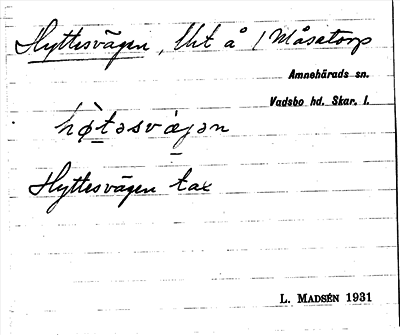 Hyttesvägen, Ut å / Måsatorp
Amnehärads sn.
Vadsbo hd. Skar. l.
hø̀təsvæ̀jən
Hyttesvägen tax
L. MADSÉN 1931